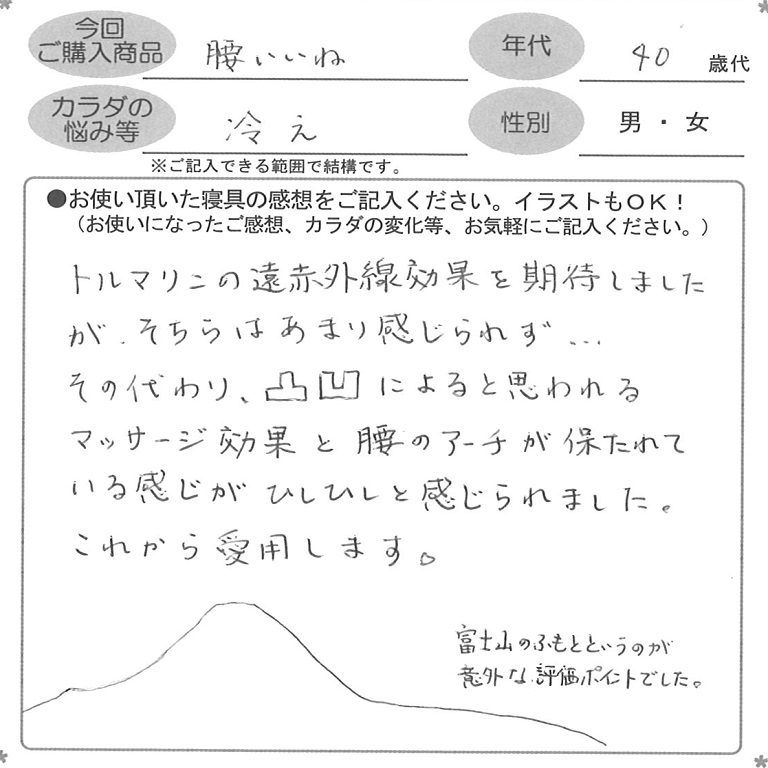 今回
ご購入商品
腰いいね
年代
40 歳代
カラダの
悩み等
冷え
性別
男・女
※ご記入できる範囲で結構です。
●お使い頂いた寝具の感想をご記入ください。イラストもOK!
(お使いになったご感想、カラダの変化等、お気軽にご記入ください。)
トルマリンの遠赤外線効果を期待しました
が、そちらはあまり感じられず…
その代わり、凸凹によると思われる
マッサージ効果と腰のアーチが保たれて
いる感じがひしひしと感じられました。
これから愛用します。
富士山のふもとというのが
意外な評価ポイントでした。